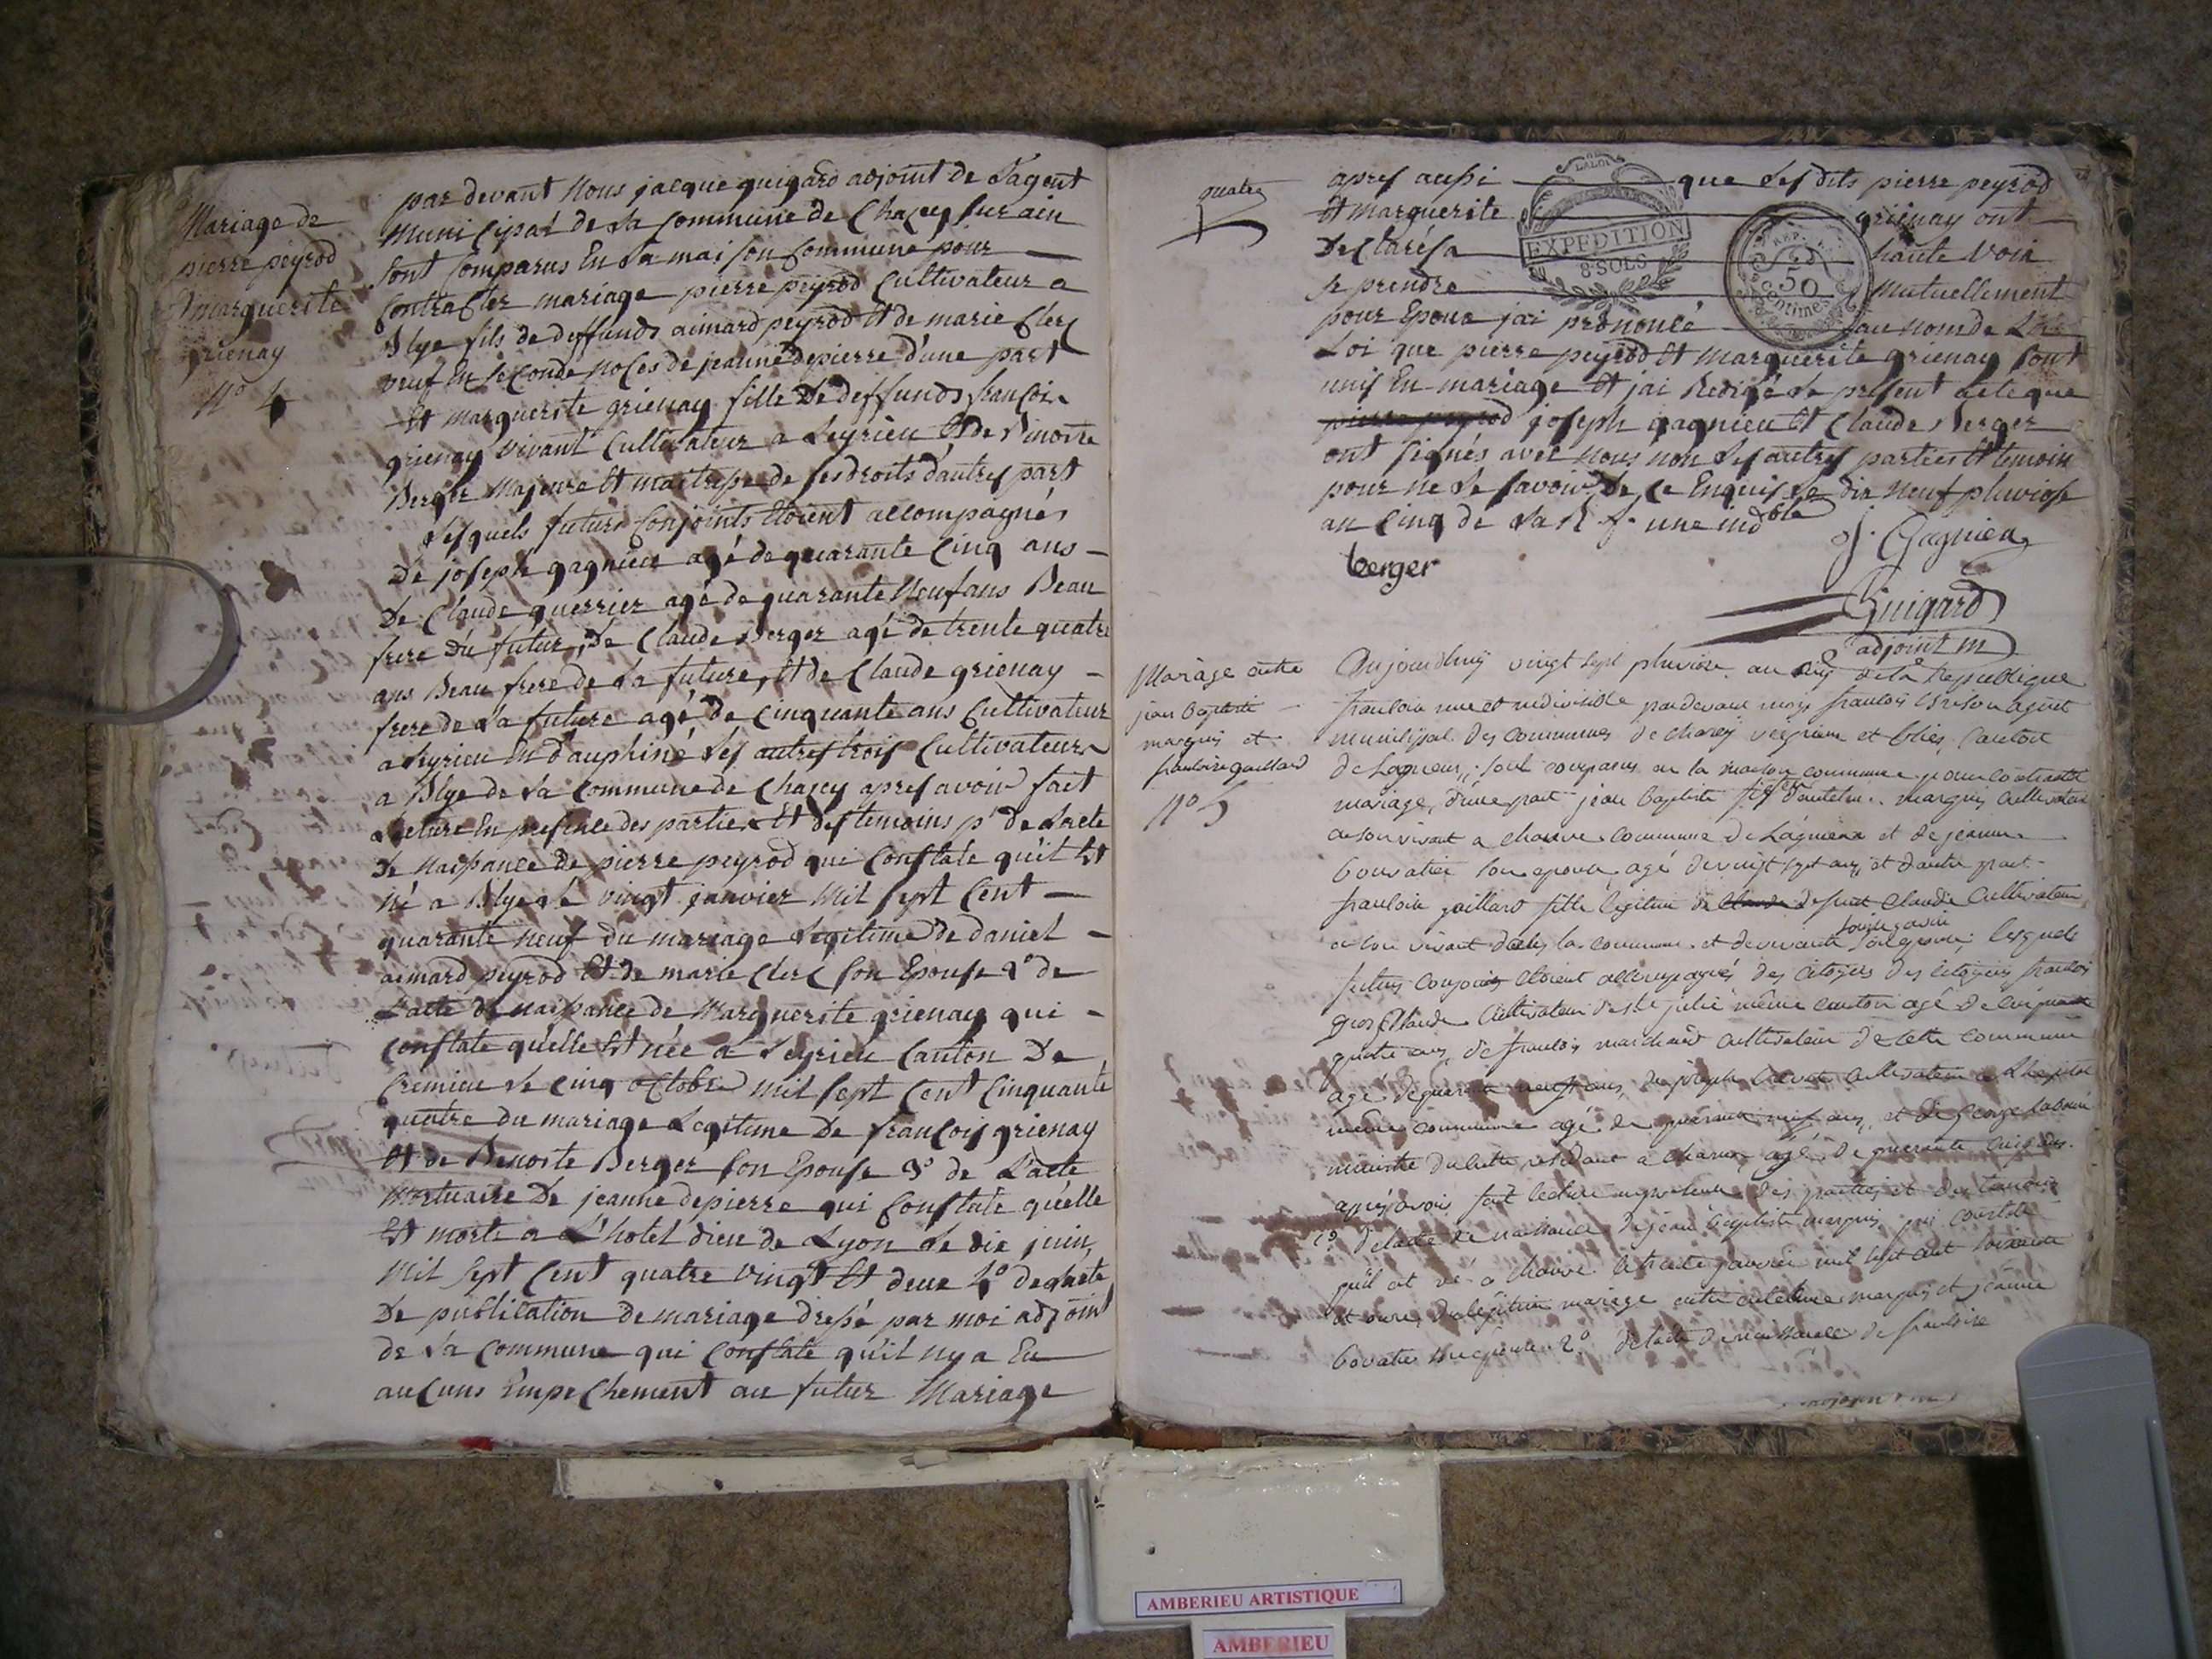 Mariage de
pierre peyrod
& marguerite
grienay
N° 4
par devant Nous jacque guigard adjoint de L'agent
Municipal de La Commune de Chazey Sur ain
Sont Comparus En La maison Commune pour
Contracter mariage pierre peyrod Cultivateur a
Blye fils de deffunds aimard peyrod Et de marie Clerc
veuf En seconde noces de jeanne depierre d'une part
Et marguerite grienay fille De deffunds françois
grienay vivant Cultivateur a Leyrieu Et de Benoite
Berger Majeure Et maitresse de ses droits d'autres part
Lesquels futurs Conjoints Etoient accompagnés
De joseph gagnieu agé de quarante Cinq ans
De Claude guerrier agé de quarante Neuf ans Beau
frere du futur, De Claude Berger agé de trente quatre
ans Beau frere de La future, Et de Claude grienay
frere de La future agé de Cinquante ans Cultivateur
a Leyrieu En dauphiné Les autres trois Cultivateurs
a Blye de La Commune de Chazey apres avoir fait
Lecture En presence des parties Et des temoins 1° De Lacte
De Naissance de pierre peyrod qui Constate qu'il Est
Né a Blye Le vingt janvier Mil Sept Cent
quarante Neuf du mariage Legitime de daniel
aimard peyrod Et de marie Clerc Son Epouse 2° de
Lacte de Naissance de Marguerite grienay qui
Constate qu'elle Est Née a Leyrieu Canton De
Cremieu Le Cinq octobre Mil Sept Cent Cinquante
quatre du mariage Legitime De françois grienay
Et de Benoite Berger Son Epouse 3° de L'acte
Mortuaire De jeanne depierre qui Constate quelle
Est morte a L'hotel dieu de Lyon Le dix juin
Mil Sept Cent quatre vingt Et deux 4° de Lacte
De publication de mariage dressé par moi adjoint
de La Commune qui Constate qu'il ny a Eu
aucuns Empechement au futur Mariage
quatre
apres aussi que Lesdits pierre peyrod
Et Marguerite grienay ont
Declarés a haute Voix
Se prendre Mutuellement
pour Epoux jai prononcé au nom de La
Loi que pierre peyrod Et Marguerite grienay Sont
unis En mariage Et jai Redigé Le present acte que
pierre peyrod joseph gagnieu Et Claude Berger
ont signés avec Nous non Les autres parties Et temoin
pour ne Le Savoir De Ce Enquis Le dix Neuf pluviose
an Cinq de La R f. une indble
LA LOI
EXPEDITION
8 SOLS
50
Centimes
J. Gagnieu
berger
Guigard
adjoint m
Mariage entre
jean baptiste
marquis et
francoise gaillard
N° 5
Aujourdhuy vingt sept pluviose an cinq de la Republique
francoise une et indivisible pardevant moy francois agent
municipal des communes de chazey et blies canton
de Lagnieu, sont comparus en la maison commune pour contracter
mariage, d'une part jean baptiste fils d'antelme marquis cultivateur
de son vivant a commune de Lagnieu et de jeanne
bouvatier son epouse agé de vingt sept ans, et d'autre part
francoise gaillard fille legitime de defunt Claude Cultivateur
de son vivant la commune et de vivante son epouse lesquels
futurs conjoints etoient accompagnés des citoyens des citoyens francois
gros Claude Cultivateur de Ste julie même canton agé de cinquante
quatre ans, de francois marchand cultivateur de cette commune
agé de quarante neuf ans, de joseph cultivateur a
même commune agé de quarante neuf ans, et de george
ministre du culte residant a agé de quarante cinq ans.
après avoir fait lecture en presence des parties et des temoins
1° de lacte de naissance de jean baptiste marquis qui constate
qu'il est né a le trente janvier mil sept cent soixante
et onze, du legitime mariage entre antelme marquis et jeanne
bovatier son epouse 2° de lacte de naissance de francoise
AMBERIEU ARTISTIQUE
AMBERIEU